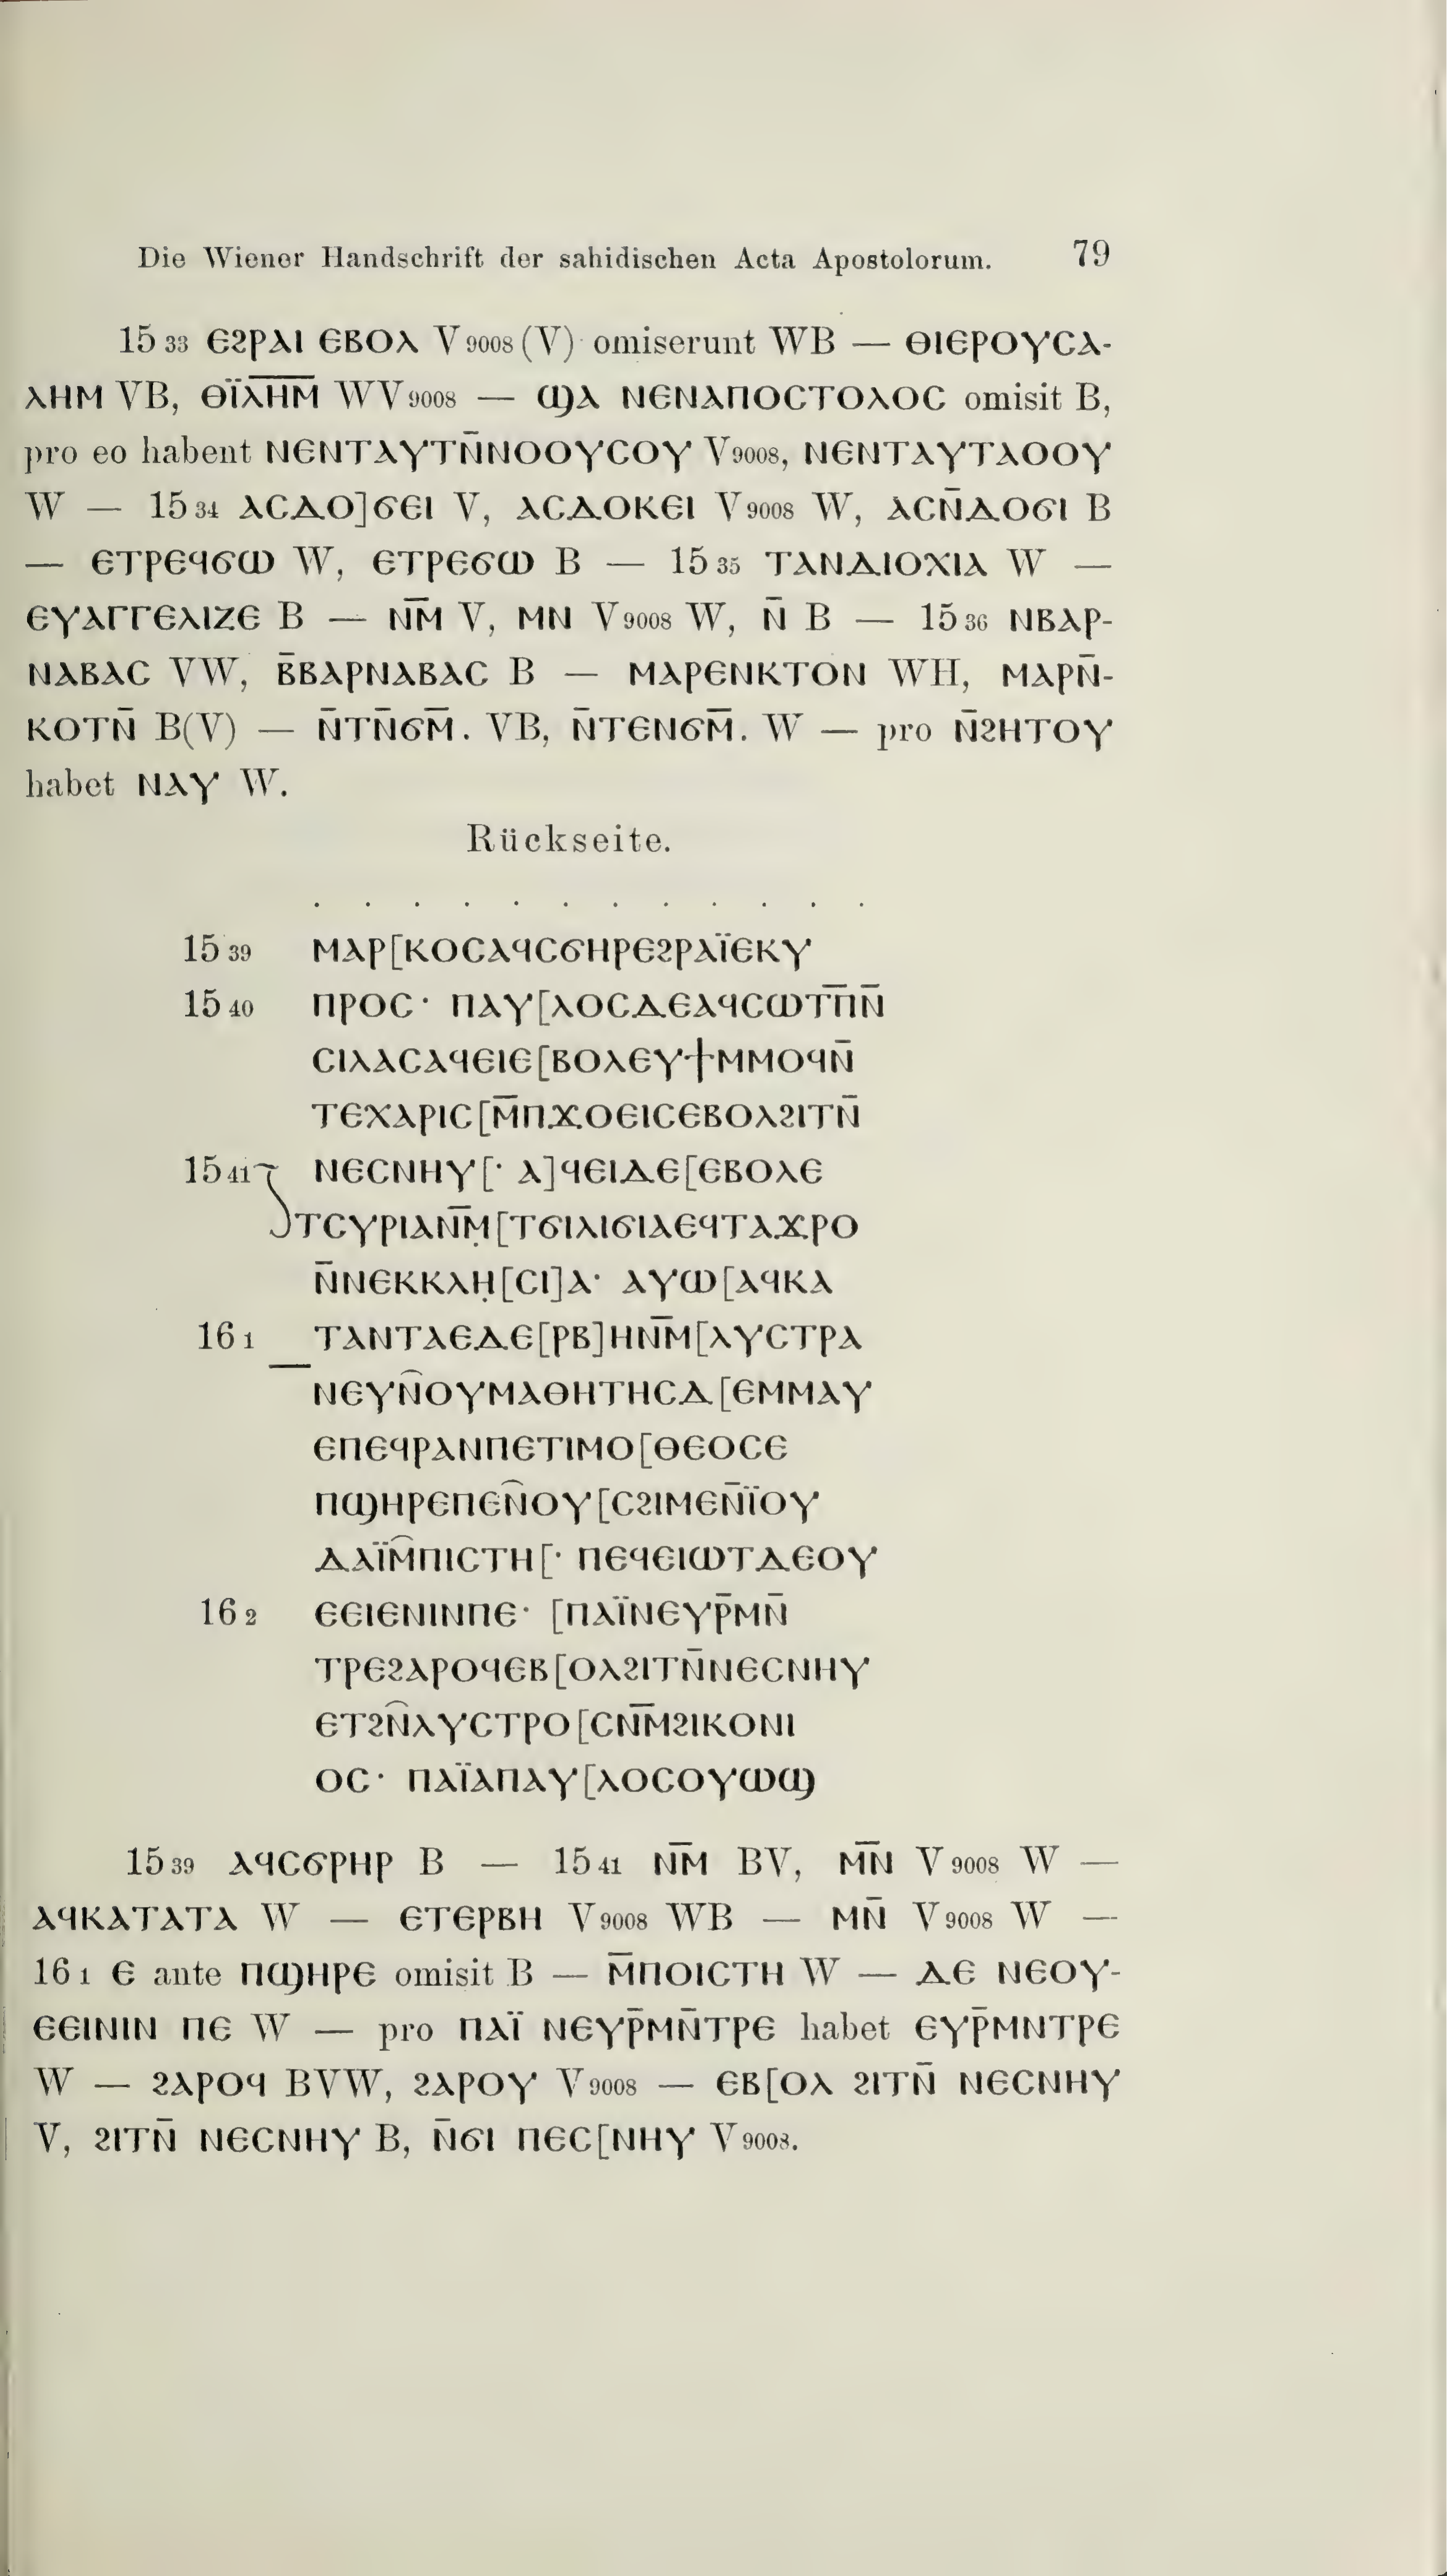 Die Wiener Handschrift der sahidischen Acta Apostolorum. 79
15 33 ⲉϩⲣⲁⲓ ⲉⲃⲟⲗ V 9008 (V) omiserunt WB — ⲑⲓⲉⲣⲟⲩⲥⲁ-
ⲗⲏⲙ VB, ⲑⲓ̈ⲗ̅ⲏ̅ⲙ̅ WV 9008 — ϣⲁ ⲛⲉⲛⲁⲡⲟⲥⲧⲟⲗⲟⲥ omisit B,
pro eo habent ⲛⲉⲛⲧⲁⲩⲧⲛ̄ⲛⲟⲟⲩⲥⲟⲩ V 9008, ⲛⲉⲛⲧⲁⲩⲧⲁⲟⲟⲩ
W — 15 34 ⲁⲥⲇⲟ]ϭⲉⲓ V, ⲁⲥⲇⲟⲕⲉⲓ V 9008 W, ⲁⲥⲛ̄ⲇⲟϭⲓ B
— ⲉⲧⲣⲉϥϭⲱ W, ⲉⲧⲣⲉϭⲱ B — 15 35 ⲧⲁⲛⲇⲓⲟⲭⲓⲁ W —
ⲉⲩⲁⲅⲅⲉⲗⲓⲍⲉ B — ⲛ̅ⲙ̅ V, ⲙⲛ V 9008 W, ⲛ̄ B — 15 36 ⲛⲃⲁⲣ-
ⲛⲁⲃⲁⲥ VW, ⲃ̄ⲃⲁⲣⲛⲁⲃⲁⲥ B — ⲙⲁⲣⲉⲛⲕⲧⲟⲛ WH, ⲙⲁⲣⲛ̄-
ⲕⲟⲧⲛ̄ B(V) — ⲛ̄ⲧⲛ̄ϭⲙ̄. VB, ⲛ̄ⲧⲉⲛϭⲙ̄. W — pro ⲛ̄ϩⲏⲧⲟⲩ
habet ⲛⲁⲩ W.
Rückseite.
. . . . . . . . . . . .
15 39 ⲙⲁⲣ[ⲕⲟⲥⲁϥⲥϭⲏⲣⲉϩⲣⲁⲓ̈ⲉⲕⲩ
15 40 ⲡⲣⲟⲥ· ⲡⲁⲩ[ⲗⲟⲥⲇⲉⲁϥⲥⲱⲧ̅ⲡ̅ⲛ̄
ⲥⲓⲗⲁⲥⲁϥⲉⲓⲉ[ⲃⲟⲗⲉⲩϯⲙⲙⲟϥⲛ̄
ⲧⲉⲭⲁⲣⲓⲥ[ⲙ̄ⲡϫⲟⲉⲓⲥⲉⲃⲟⲗϩⲓⲧⲛ̄
15 41 ⲛⲉⲥⲛⲏⲩ[· ⲁ]ϥⲉⲓⲇⲉ[ⲉⲃⲟⲗⲉ
ⲧⲥⲩⲣⲓⲁⲛ̅ⲙ̣̅[ⲧϭⲓⲗⲓϭⲓⲁⲉϥⲧⲁϫⲣⲟ
ⲛ̄ⲛⲉⲕⲕⲗⲏ̣[ⲥⲓ]ⲁ· ⲁⲩⲱ[ⲁϥⲕⲁ
16 1 ⲧⲁⲛⲧⲁⲉⲇⲉ[ⲣⲃ]ⲏⲛ̅ⲙ̅[ⲗⲩⲥⲧⲣⲁ
ⲛⲉⲩⲛ̑ⲟⲩⲙⲁⲑⲏⲧⲏⲥⲇ[ⲉⲙⲙⲁⲩ
ⲉⲡⲉϥⲣⲁⲛⲡⲉⲧⲓⲙⲟ[ⲑⲉⲟⲥⲉ
ⲡϣⲏⲣⲉⲡⲉⲛ̑ⲟⲩ[ⲥϩⲓⲙⲉⲛ̄ⲓ̈ⲟⲩ
ⲇⲁⲓ̈ⲙ̑ⲡⲓⲥⲧⲏ[· ⲡⲉϥⲉⲓⲱⲧⲇⲉⲟⲩ
16 2 ⲉⲉⲓⲉⲛⲓⲛⲡⲉ· [ⲡⲁⲓ̈ⲛⲉⲩⲣ̄ⲙⲛ̄
ⲧⲣⲉϩⲁⲣⲟϥⲉⲃ[ⲟⲗϩⲓⲧⲛ̄ⲛⲉⲥⲛⲏⲩ
ⲉⲧϩⲛ̑ⲗⲩⲥⲧⲣⲟ[ⲥⲛ̅ⲙ̅ϩⲓⲕⲟⲛⲓ
ⲟⲥ· ⲡⲁⲓ̈ⲁⲡⲁⲩ[ⲗⲟⲥⲟⲩⲱϣ
15 39 ⲁϥⲥϭⲣⲏⲣ B — 15 41 ⲛ̅ⲙ̅ BV, ⲙ̅ⲛ̅ V 9008 W —
ⲁϥⲕⲁⲧⲁⲧⲁ W — ⲉⲧⲉⲣⲃⲏ V 9008 WB — ⲙⲛ̄ V 9008 W —
16 1 ⲉ ante ⲡϣⲏⲣⲉ omisit B — ⲙ̄ⲡⲟⲓⲥⲧⲏ W — ⲇⲉ ⲛⲉⲟⲩ-
ⲉⲉⲓⲛⲓⲛ ⲡⲉ W — pro ⲡⲁⲓ̈ ⲛⲉⲩⲣ̄ⲙⲛ̄ⲧⲣⲉ habet ⲉⲩⲣ̄ⲙⲛⲧⲣⲉ
W — ϩⲁⲣⲟϥ BVW, ϩⲁⲣⲟⲩ V 9008 — ⲉⲃ[ⲟⲗ ϩⲓⲧⲛ̄ ⲛⲉⲥⲛⲏⲩ
V, ϩⲓⲧⲛ̄ ⲛⲉⲥⲛⲏⲩ B, ⲛ̄ϭⲓ ⲡⲉⲥ[ⲛⲏⲩ V 9008.